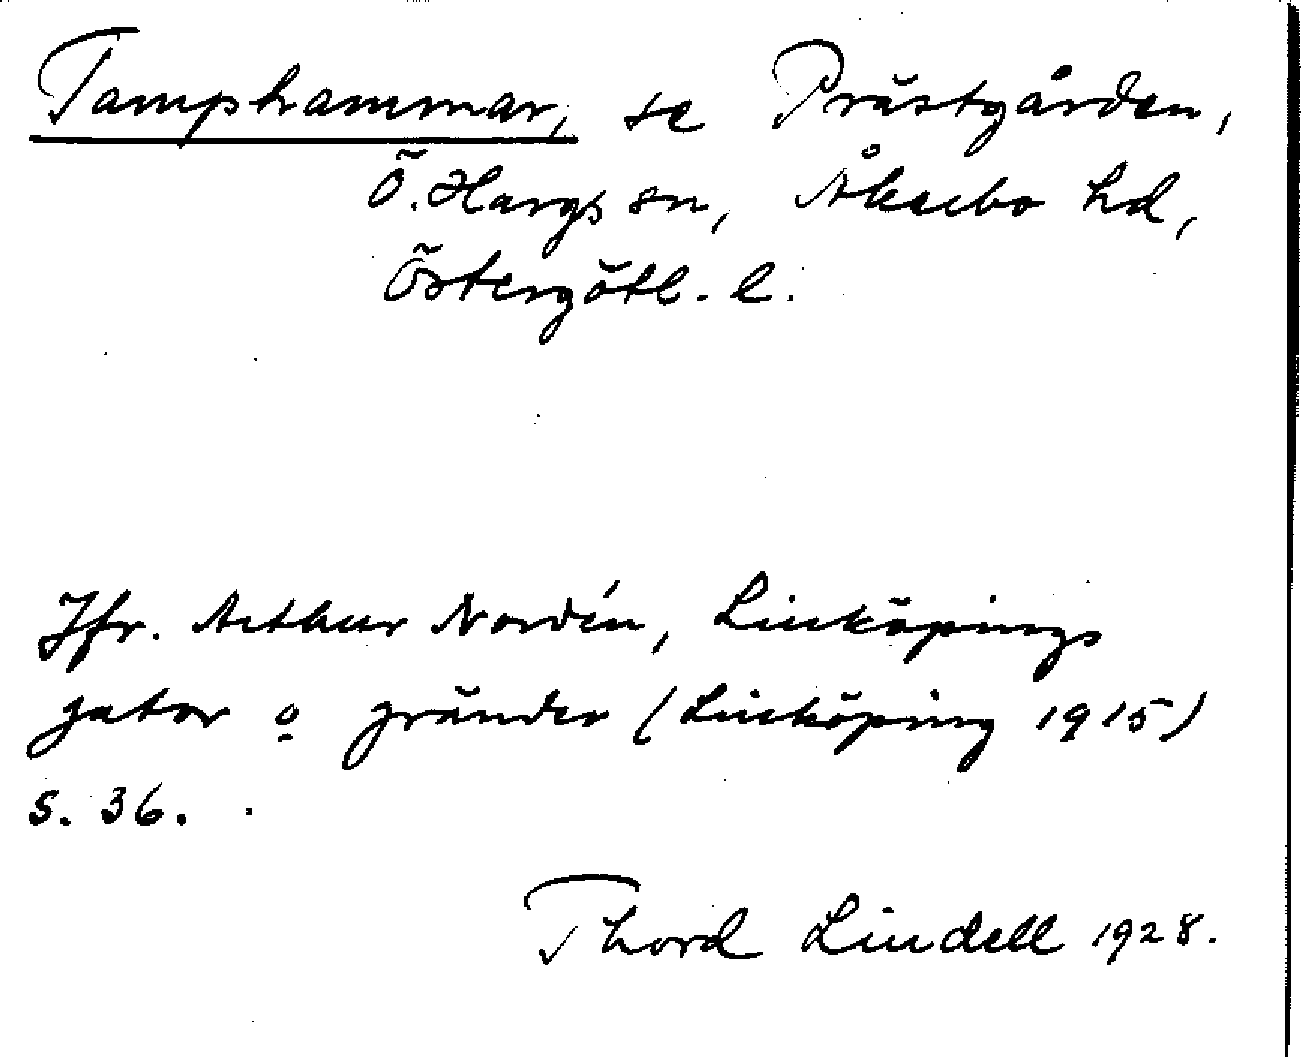 Tamphammar, se Prästgården,
Ö. Hargs sn, Åkerbo hd,
Östergötl. l.
Jfr. Arthur Nordén, Linköpings
gator o gränder (Linköping 1915)
s. 36.
Thord Lindell 1928.